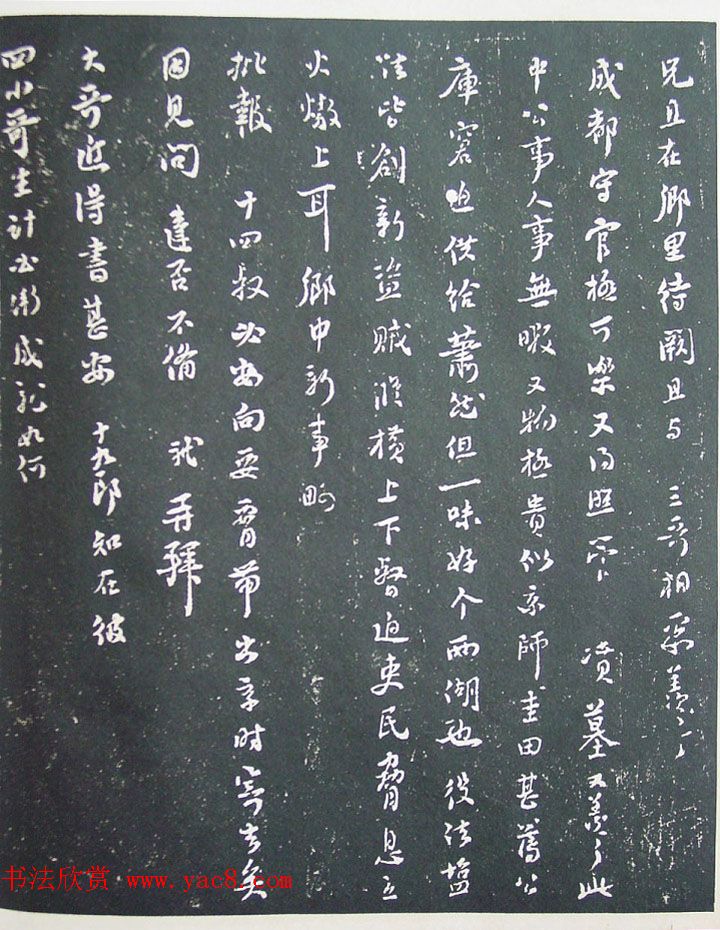 兄且在鄉里待闕且与三哥相聚羨羨
成都守官極可樂又得照管墳墓又羨羨此
中公事人事無暇又物極貴似京師圭田甚薄公
庫窘迫供給蕭然但一味好个西湖也役法鹽
法皆創新盜賊縱橫上下督迫吏民脅息立
火燉上耳鄉中新事略
批報十四叔必安向要
因見問達否不備軾再拜
大哥近得書甚安十九郎知在彼
四小哥生計必漸成就如何
书法欣赏 www.yac8.com